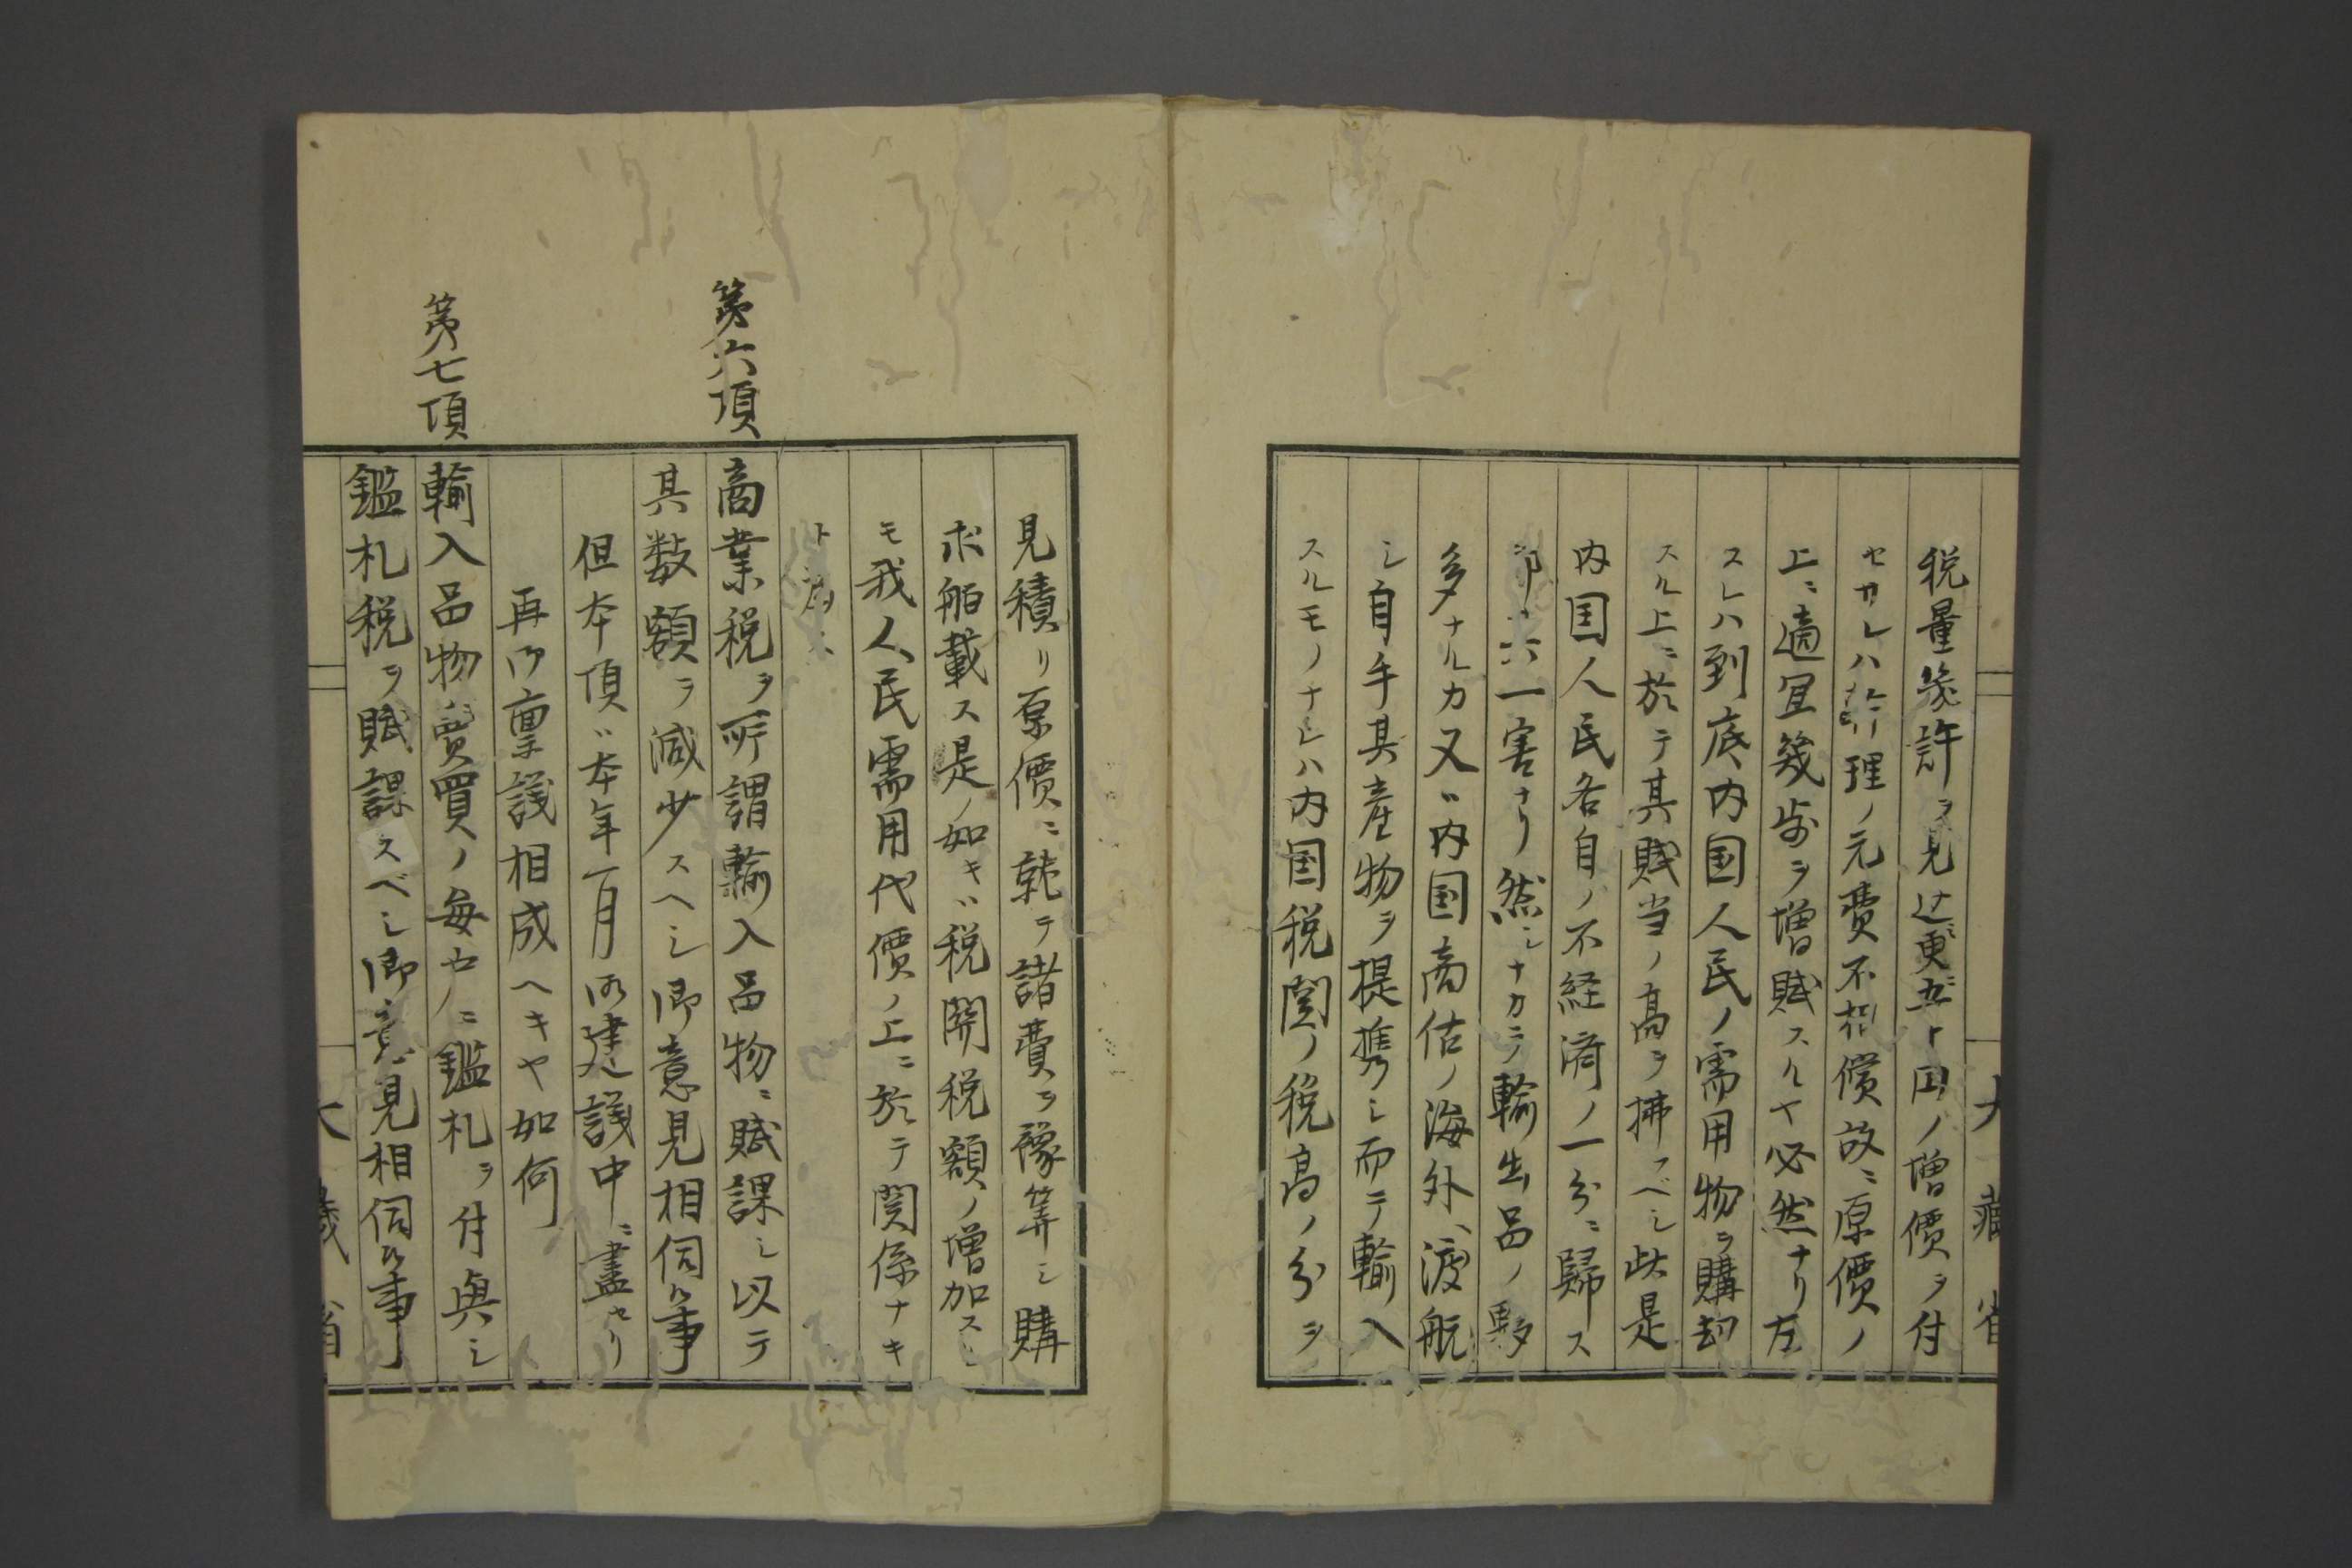 税量幾許ヲ見込更ニ五十円ノ増價ヲ付
セカレハ計理ノ元費不相償故ニ原價ノ
上ニ適冝幾歩ヲ増賦スルヤ必然ナリ左
スレハ到底内国人民ノ需用物ヲ購却
スル上ニ於テ其賦当ノ高ヲ拂フベシ此是
内国人民各自ノ不経済ノ一分ニ歸ス
一害ナリ然シナカラ輸出品ノ夥
多ナルカ又ハ内国商估ノ海外ヘ渡航
シ自手其産物ヲ提携シ而テ輸入
スルモノナレハ内国税関ノ税高ノ分ヲ
大藏省
見積リ原價ニ就テ諸費ヲ豫算シ購
求舶載ス是ノ如キハ税関税額ノ増加スル
モ我人民需用代價ノ上ニ於テ関係ナキ
ト
第六項
商業税ヲ所謂輸入品物ニ賦課シ以テ
其数額ヲ減少スヘシ御意見相伺候事
但本項ハ本年一月御建議中ニ盡セリ
再御稟議相成ヘキヤ如何
第七項
輸入品物賣買ノ毎戸ニ鑑札ヲ付與シ
鑑札税ヲ賦課スベシ御意見相伺候事
大藏省